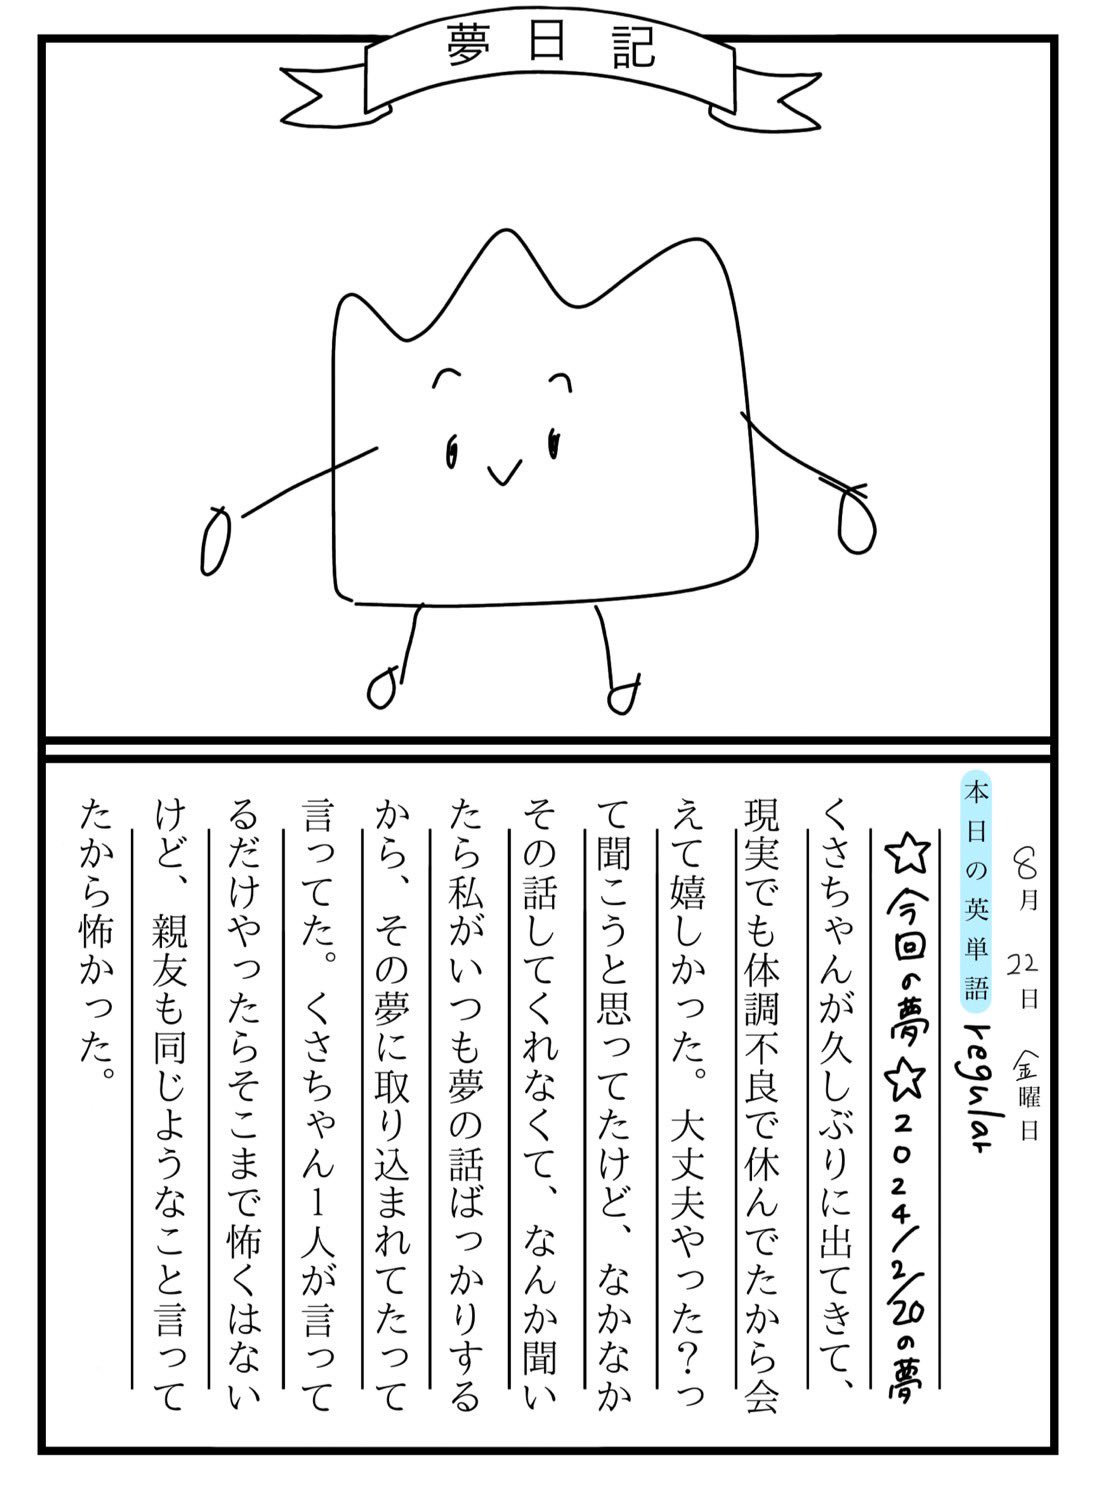 夢日記
8月 22日 金曜日
本日の英単語 regular
☆今回の夢☆2024/2/20の夢
くさちゃんが久しぶりに出てきて、
現実でも体調不良で休んでたから会
えて嬉しかった。大丈夫やった？っ
て聞こうと思ってたけど、なかなか
その話してくれなくて、なんか聞い
たら私がいつも夢の話ばっかりする
から、その夢に取り込まれてたって
言ってた。くさちゃん1人が言って
るだけやったらそこまで怖くはない
けど、親友も同じようなこと言って
たから怖かった。